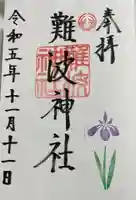 奉拝
難波神社
令和五年十一月十一日